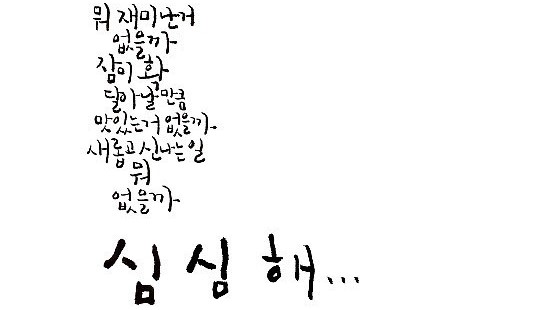 뭐 재미난거
없을까
잠이 확
달아날만큼
맛있는거 없을까
새롭고 신나는일
뭐
없을까
심심해...